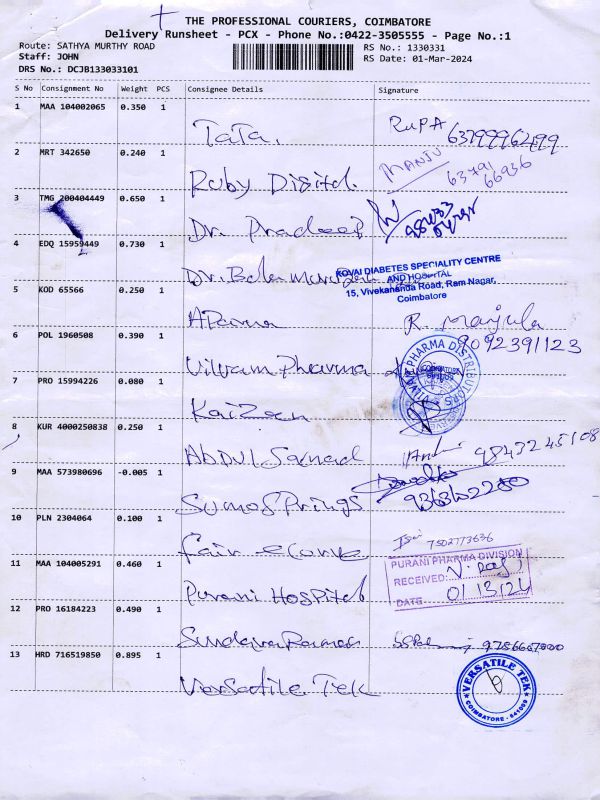 THE PROFESSIONAL COURIERS, COIMBATORE
Delivery Runsheet - PCX - Phone No.:0422-3505555 - Page No.:1
Route: SATHYA MURTHY ROAD
Staff: JOHN
DRS No.: DCJB133033101
RS No.: 1330331
RS Date: 01-Mar-2024
S No Consignment No Weight PCS Consignee Details Signature
1 MAA 104002065 0.350 1
TaTa. RUPA 63799962499
2 MRT 342650 0.240 1
Ruby Digital. MANJU 63791 66936
3 TMG 200404449 0.650 1
Dr. Pradeep
4 EDQ 15959449 0.730 1
Dr. Bala
KOVAI DIABETES SPECIALITY CENTRE
AND HOSPITAL
15, Vivekananda Road, Ram Nagar,
Coimbatore
5 KOD 65566 0.250 1
Aparna R. Manjula
9092391123
6 POL 1960508 0.390 1
Vilvam Pharma
VILVAM PHARMA DISTRIBUTORS
COIMBATORE
7 PRO 15994226 0.080 1
Kaizen
8 KUR 4000250838 0.250 1
Abdul Samad 9843245108
9 MAA 573980696 -0.005 1
Sumos Prings
10 PLN 2304064 0.100 1
fair 7502773636
11 MAA 104005291 0.460 1
Purani Hospital
PURANI PHARMA DIVISION
RECEIVED:
DATE 01/3/24
12 PRO 16184223 0.490 1
Sundara
13 HRD 716519850 0.895 1
Versatile Tek
VERSATILE TEK
COIMBATORE